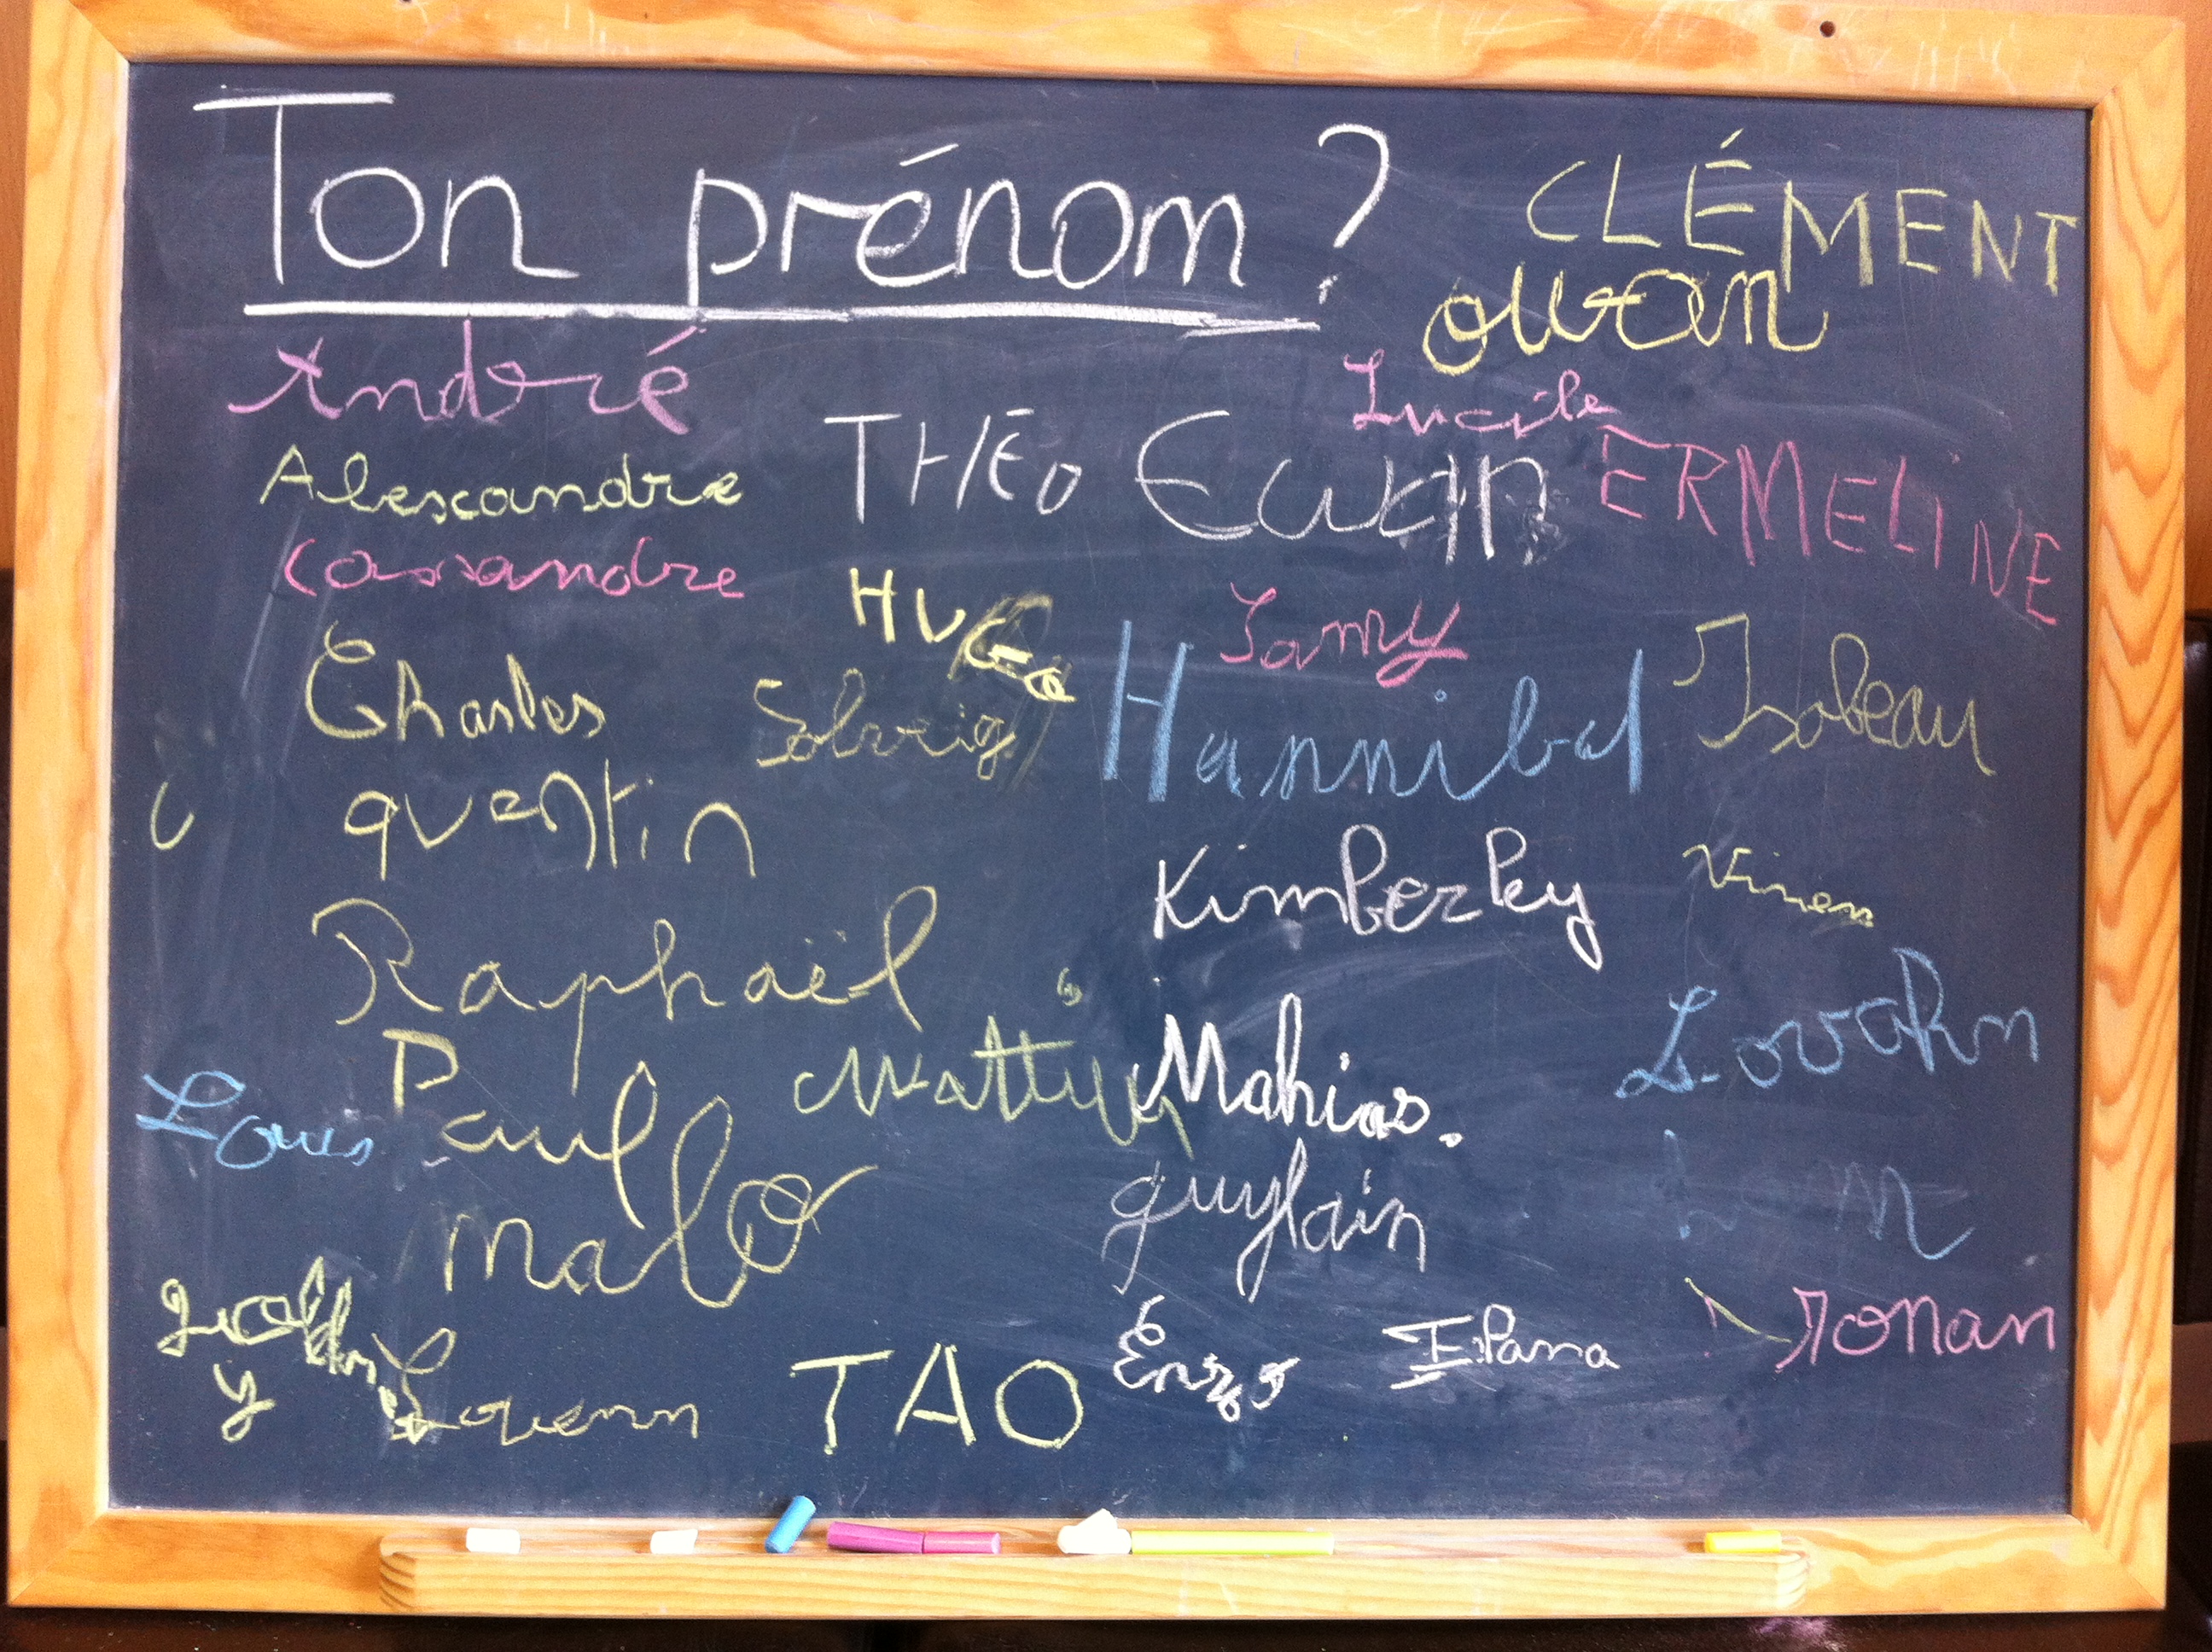 Ton prénom ?
CLÉMENT
André
Lucile
THÉO
Ewan
ERMELINE
Alexandre
Cassandre
HUGO
Samy
Charles
Solveig
Hannibal
Isabeau
quentin
Kimberley
Raphaël
Lovahn
Paul
Mahias.
Louis
malo
guylain
Enzo
Ilana
Ronan
y
Louenn
TAO